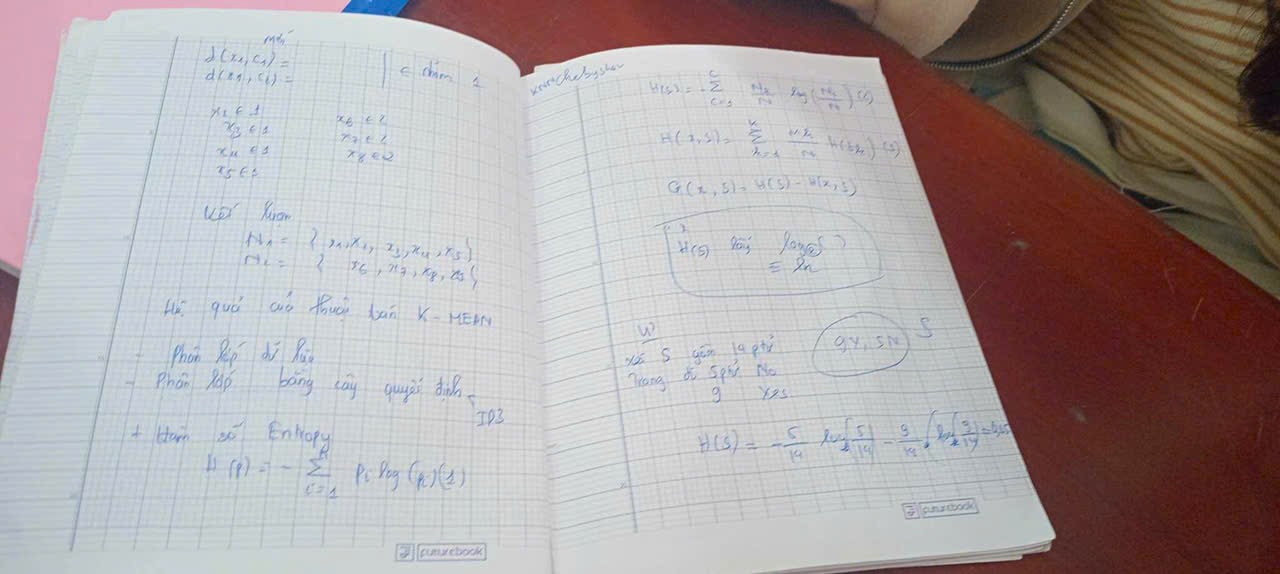 mới
d(x1, c1) =
d(x1, c2) =
∈ nhóm 1
x2 ∈ 1
x3 ∈ 1
x4 ∈ 1
x5 ∈ 1
x6 ∈ 2
x7 ∈ 2
x8 ∈ 2
Kết luận
N1 = { x1, x2, x3, x4, x5 }
N2 = { x6, x7, x8, x9 }
Hệ quả của thuật toán K-MEAN
- Phân lớp dữ liệu
- Phân lớp bằng cây quyết định
ID3
+ Hàm số Entropy
H(p) = - Σ i=1 n pi log(pi) (1)
futurebook
Chebyshev
H(S) = - Σ c=1 C Nc/N log(Nc/N) (2)
H(x, S) = Σ k=1 K mk/N H(Sk) (3)
G(x, S) = H(S) - H(x, S)
H(S) lấy log2
≡ ln
VD
xét S gồm 14 ptử
Trong đó 5 ptử No
9 Yes
9Y, 5N S
H(S) = - 5/14 log2(5/14) - 9/14 log2(9/14) =
futurebook